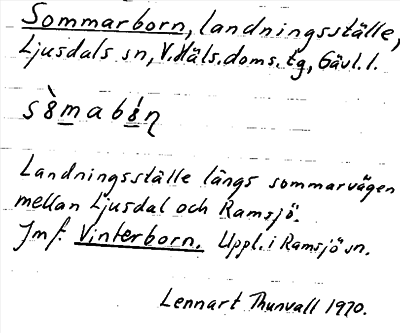 Sommarborn, landningsställe,
Ljusdals sn, V. Häls. doms. tg, Gävl. l.
Landningsställe längs sommarvägen
mellan Ljusdal och Ramsjö.
Jmf. Vinterborn. Uppl. i Ramsjö sn.
Lennart Thunvall 1970.